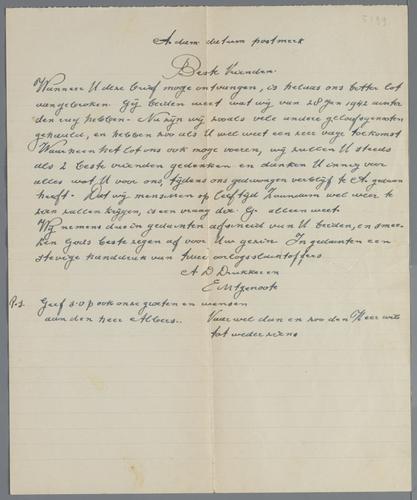 5199
A.dam datum postmerk
Beste Vrienden.
Wanneer U deze brief moge ontvangen, is helaas ons bitter lot
aangebroken. Gij beiden weet wat wij van 28 Jan 1942 achter
den rug hebben. Nu zijn wij zoals vele andere geloofsgenooten
gehaald, en hebben zoo als U wel weet een zeer vage toekomst
Waarheen het lot ons ook moge voeren, wij zullen U steeds
als 2 beste vrienden gedenken en danken U innig voor
alles wat U voor ons, tijdens ons gedwongen verblijf te A. gedaan
heeft. Dat wij menschen op leeftijd Zaandam wel weer te
zien zullen krijgen, is een vraag die G. alleen weet.
Wij nemen dus in gedachten afscheid van U beiden, en smee-
ken Gods beste zegen af voor Uw gezin. In gedachten een
stevige handdruk van twee oorlogsslachtoffers
A D Drukker en
Echtgenoote
P.S. Geef s.v.p ook onze groeten en wenschen
aan den heer Albers..
Vaarwel dan en zoo den Heer wil
tot wederziens